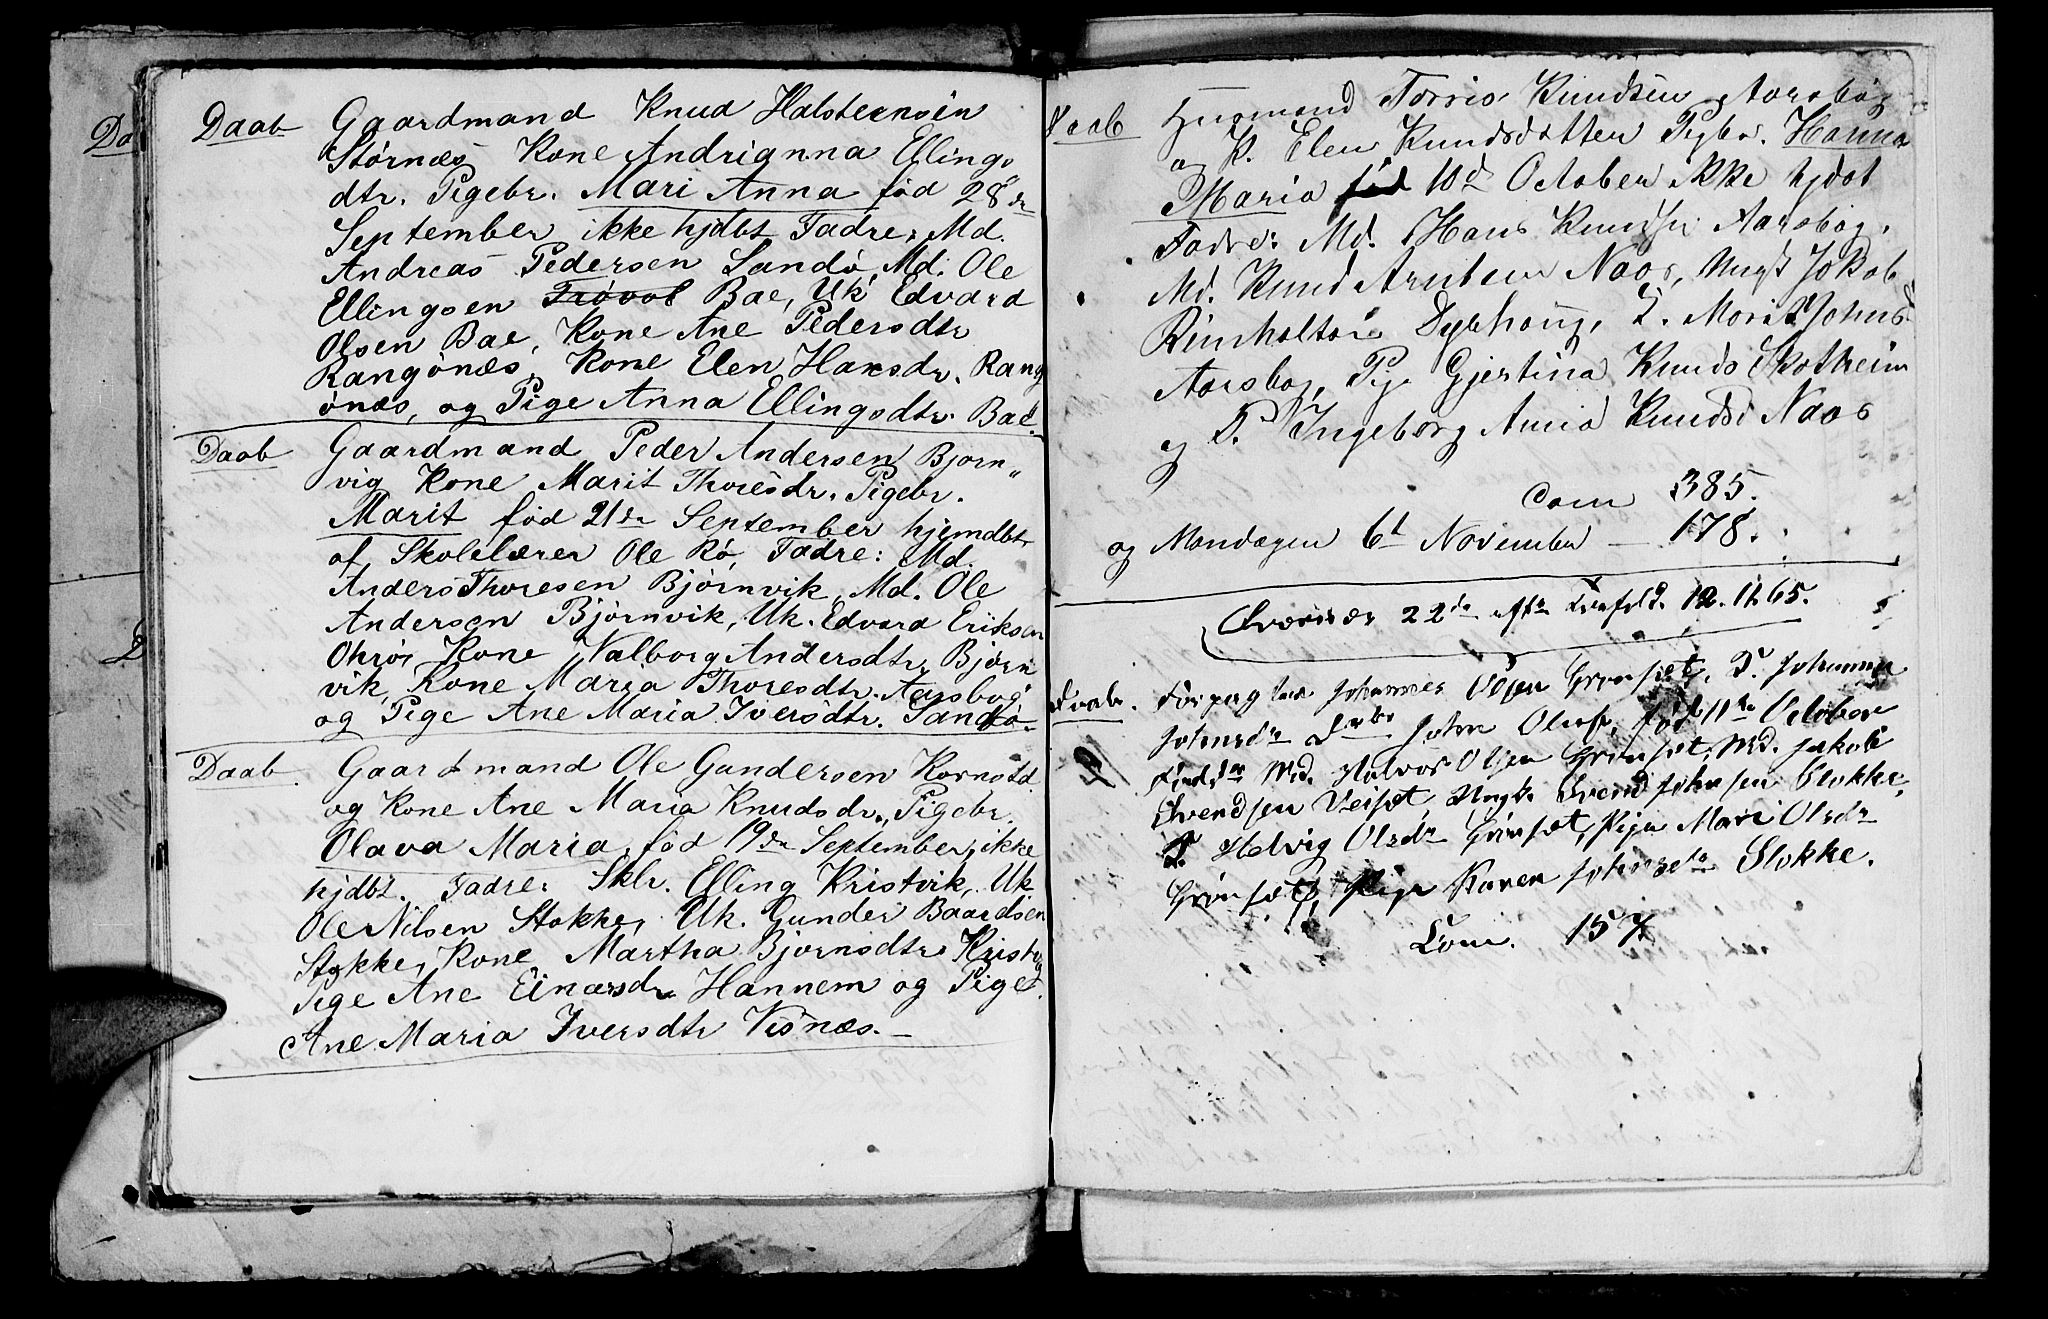 Daab Gaardmand Knud Halsteensen
Størnæs Kone Andrianna Ellings
dtr. Pigebr. Mari Anna fød 28de
September ikke hjdbt Fadre: Md.
Andreas Pedersen Sandø, Md. Ole
Ellingsen Bae, Uk Edvard
Olsen Bae, Kone Ane Pedersdtr
Rangønæs, Kone Elen Hansdr. Rang
ønæs, og Pige Anna Ellingsdtr. Bae.
Daab Gaardmand Peder Andersen Bjørn"
vig Kone Marit Thoresdr. Pigebr.
Marit fød 21de September hjemdbt
af Skolelærer Ole Rø, Fadre: Md.
Anders Thoresen Bjørnvik, Md. Ole
Andersen Bjørnvik, Uk. Edvard Eriksen
Kone Valborg Andersdtr. Bjørn
vik, Kone Maria Thoresdtr. Aarsbog
og Pige Ane Maria Iversdtr. Sandø.
Daab. Gaardmand Ole Gundersen Kornstd.
og Kone Ane Maria Knudsdr., Pigebr.
Olava Maria, fød 19de September, ikke
hjdbt. Fadre: Sklr. Elling Kristvik, Uk
Ole Nilsen Stokke, Uk. Gunder Baardsen
Stokke, Kone Martha Bjørnsdtr Kristvig
Pige Ane Einarsdr Hannem og Pige
Ane Maria Iversdtr Visnæs.—
Daab Husmand Knudsen Aarsbog
og K. Elen Knudsdatter Pigbr. Hanna
Maria fød 10d October ikke hjdbt
Fadre: Md. Hans Knudsen Aarsbog,
Md. Knud Arntsen Naas, Ungk Jakob
K. Marit Johnsd
Aarsbog, Pige Gjertina Knudsd Skotheim
og P. Ingeborg Anna Knudsd Naas
Com 385.
og Mandagen 6t November — 178.
Qværnæs 22de 12. 11. 65.
Daab. Johannes Olsen Grønsæt, K. Johanna
Johnsdr John Olaf, fød 11te October
Md. Halvor Olsen Grønsæt, Md. Jakob
Svendsen Veiset, Ungk. Svend Johnsen Stokke,
K. Helvig Olsdr Grønsæt, Pige Mari Olsdr
Grønsæt, Pige Karen Johnsdr Stokke.
Com. 157